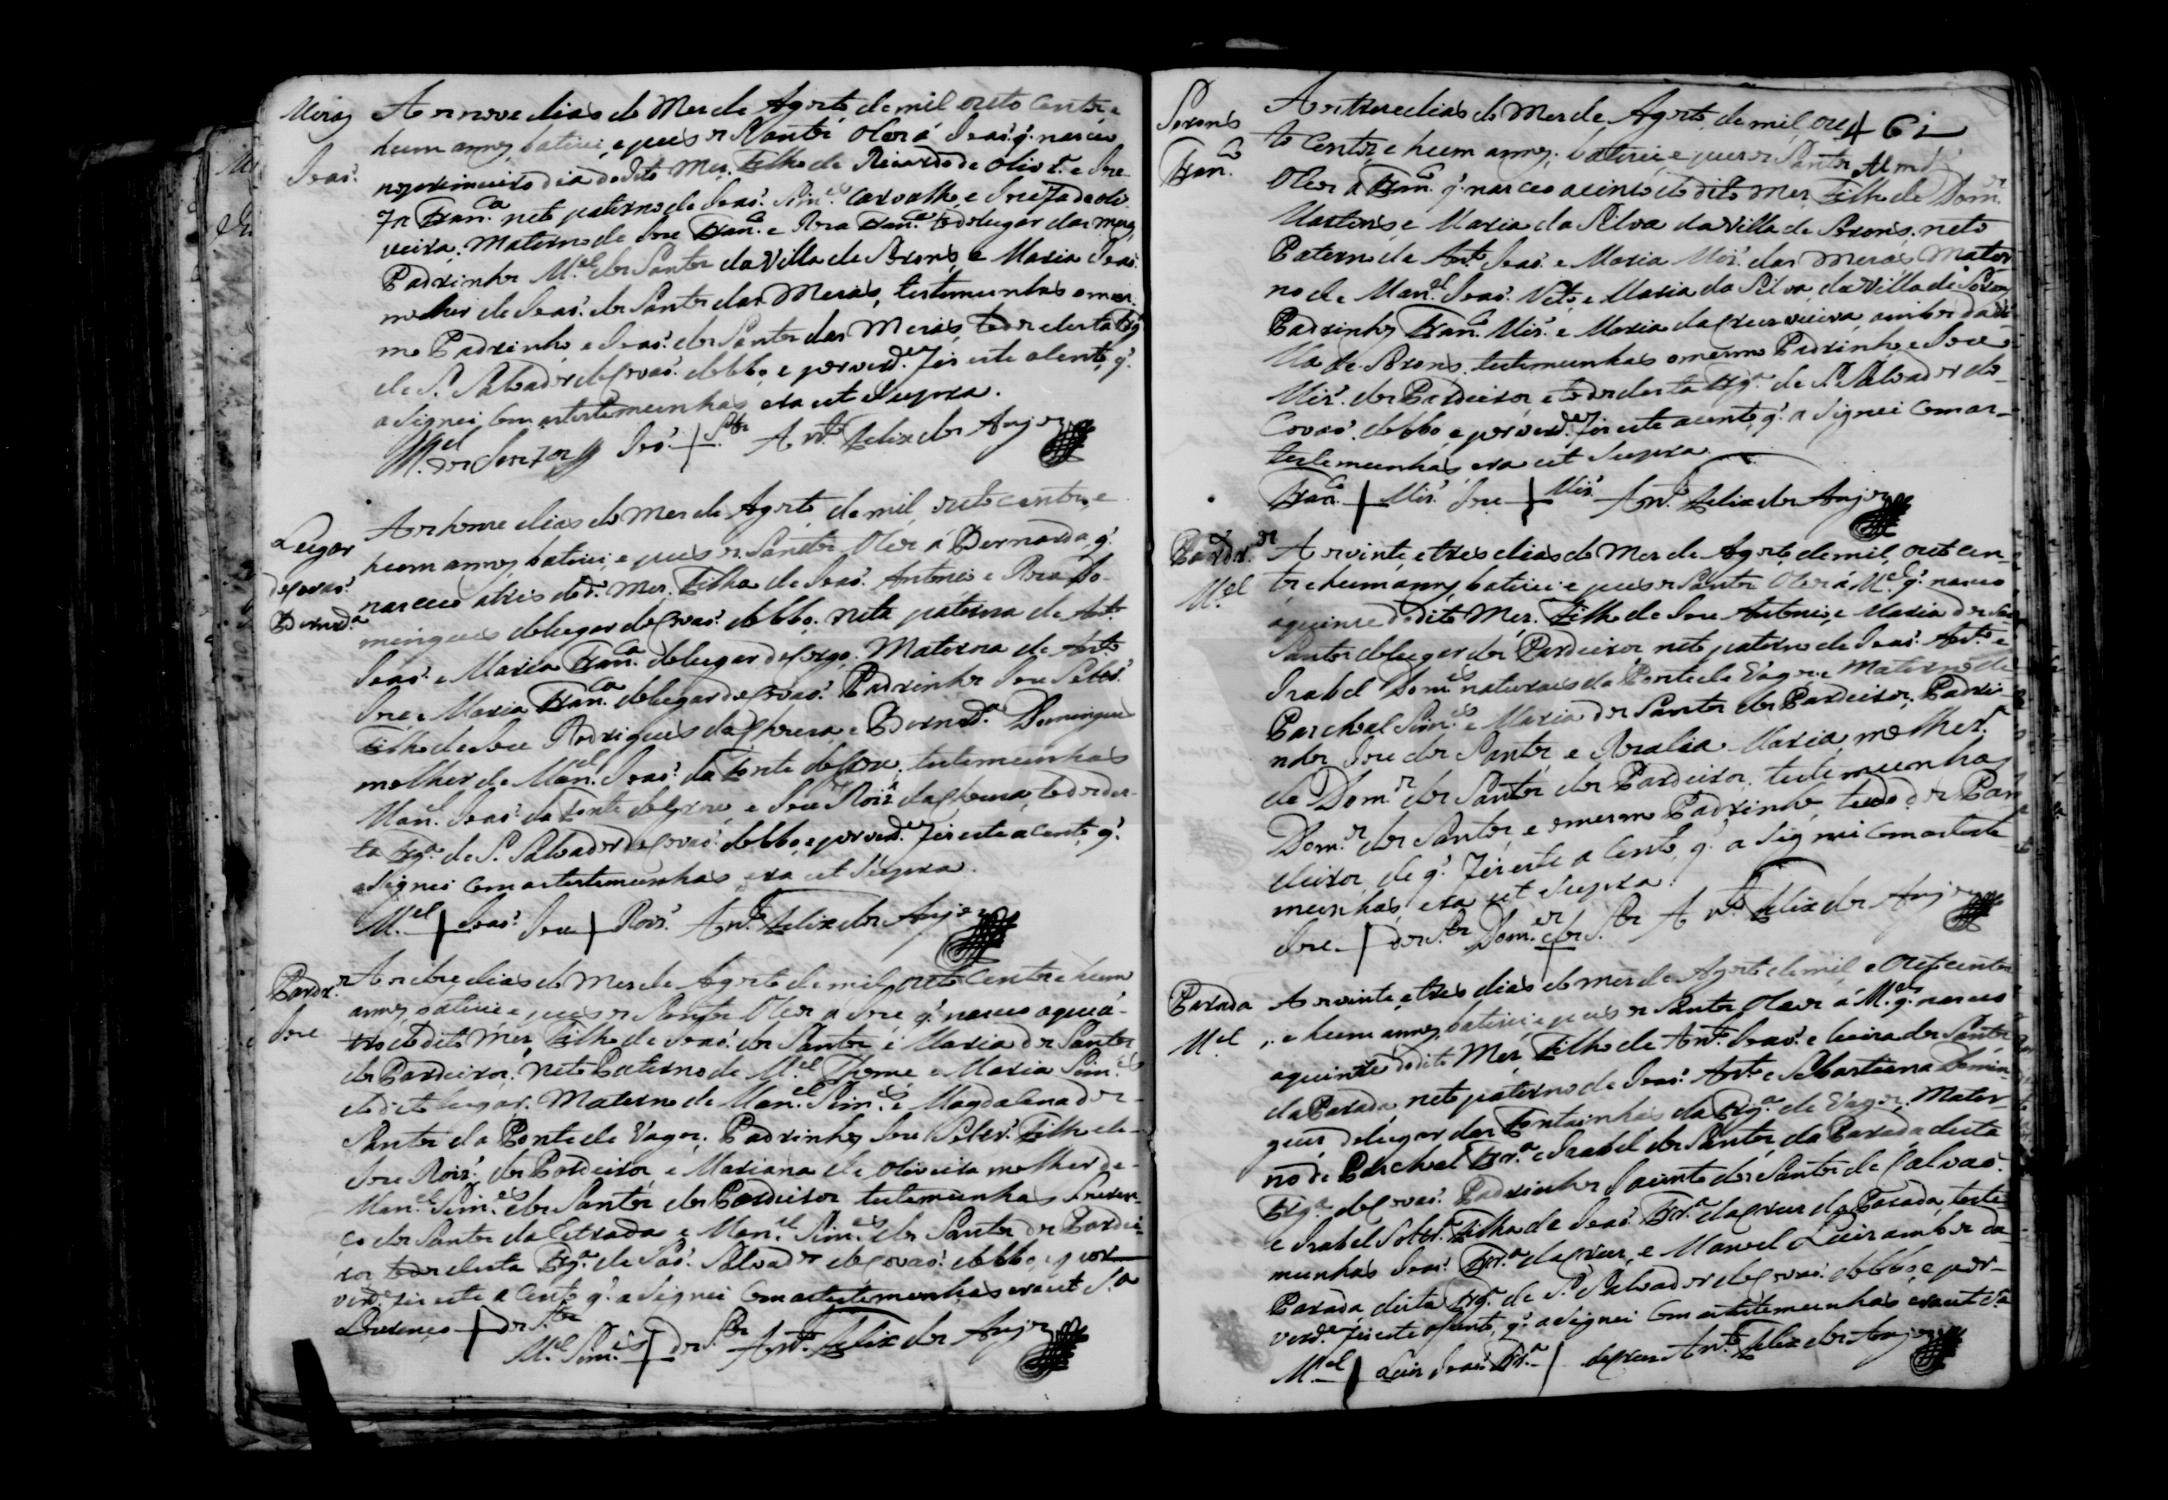 Meras
Joaõ.
Aos nove dias do Mes de Agosto de mil outo centos e
hum annos, batizei, e puz os Santos Oleos á Joaõ. q̃. nasceo
no primeiro dia do dito Mes, Filho de Ricardo de Oliv.ra e Jose
fa Fran.ca neto paterno de Joaõ. Sim.es Carvalho, e Josefa de oli
veira: Materno de Jose Fran.co e Roza Fran.ca todos do lugar das meras,
Padrinhos M.el dos Santos da Villa de Sorons, e Maria Joaõ.
molher de Joaõ. dos Santos das Meras, testimunhas o mes-
mo Padrinho, e Joaõ. dos Santos das Meras, todos desta Frg.a
de S. Salvador de Covaõ. do lobo, e por verd.e fiz este asento, q̃.
asignei com as testemunhas, era ut supra.
M.el dos Santos Joaõ. + dos S.tos Ant.o Felix dos Anjos
Lugar
de Covaõ.
Bernard.a
Aos honze dias do Mes de Agosto, de mil, outo centos, e
hum annos, batizei, e puz os Santos Oleos á Bernarda, q̃.
nasceo a tres do d.o Mes, Filha de Joaõ. Antonio e Roza Do-
mingues do lugar de Covaõ. do lobo. neta paterna de Ant.o
Joaõ. e Maria Fran.ca do lugar de Materna de Ant.o
Jose, e Maria Fran.ca do lugar de Covaõ. Padrinhos Jose Solt.o
Filho de Jose Rodrigues da e Bernard.a Domingues
molher de Man.el Joaõ. da Fonte do testemunhas
Man.el Joaõ. da Fonte do e Jose Roiz da todos des-
ta Frg.a de S. Salvador de Covaõ. do lobo, e por verd.e fiz este asento, q̃.
asignei com as testemunhas, era ut supra.
M.el + Joaõ. Jose + Rois. Ant.o Felix dos Anjos
Pardr.os
Jose
Aos doze dias do Mes de Agosto de mil, outo centos e hum
annos, batizei e puz os Santos Oleos a Jose q̃. nasceo a qua-
tro do dito Mes, Filho de Joaõ. dos Santos e Maria dos Santos
dos Pardeiros. neto Paterno de M.el Thome e Maria Sim.es
do dito lugar. Materno de Man.el Sim.es e Magdalena dos
Santos da Ponte de Vagos. Padrinhos Jose Solt.o Filho de
Jose Roiz. dos Pardeiros e Mariana de Oliveira molher de
Man.el Sim.es dos Santos dos Pardeiros testemunhas Louren-
ço dos Santos da Estrada e Man.el Sim.es dos Santos dos Pardei
ros todos desta Frg.a de Saõ. Salvador de Covaõ. do lobo, e por
verd.e fiz este asento q̃. asignei com as testemunhas era ut S.a
Lourenço + dos S.tos
M.el Sim.es + dos S.tos Ant.o Felix dos Anjos
Sorons
Fran.co
461
Alm.da
Aos treze dias do Mes de Agosto, de mil, ou
to centos, e hum annos, batizei, e puz os Santos
Oleos á Fran.co q̃. nasceo a sinco do dito Mes, Filho de Dom.os
Martins e Maria da Silva da Villa de Sorons, neto
Paterno de Ant.o Joaõ. e Maria Mis. das Meras, Mater
no de Man.el Joaõ. Neto e Maria da Silva da Villa de Soroñs
Padrinhos Fran.co Mis. e Maria da Cruz vieira, ambos da Vi-
lla de Soroñs. testemunhas o mesmo Padrinho, e Jose
Mis. dos Pardeiros, e todos desta Frg.a de S. Salvador de
Covaõ. do lobo, e por verd.e fiz este asento, q̃. asignei com as
testemunhas, era ut supra.
Fran.co + Mis. Jose + Mis. Ant.o Felix dos Anjos
Pardr.os
M.el
Aos vinte, e tres dias do Mes de Agosto, de mil, outo cen-
tos e hum annos, batizei e puz os Santos Oleos á M.el q̃. nasceo
a quinze do dito Mes, Filho de Jose Antonio, e Maria dos
Santos do lugar dos Pardeiros neto paterno de Joaõ. Ant.o e
Izabel Dom.es naturaes da Ponte de Vagos e Materno de
Paschoal Sim.es e Maria dos Santos dos Pardeiros, Padri-
nhos Jose dos Santos, e Roza Maria, molher
de Dom.os dos Santos dos Pardeiros. testemunhas
Dom.os dos Santos, e o mesmo Padrinho, todos dos Par
deiros, de q̃. fiz este asento, q̃. asignei com as teste
munhas, era ut supra.
Jose + dos S.tos Dom.os + dos S.tos Ant.o Felix dos Anjos
Parada
M.el
Aos vinte, e tres dias do mes de Agosto de mil, e outo centos
e hum annos, batizei e puz os Santos Oleos á M.el q̃. nasceo
a quinze do dito Mes, Filho de Ant.o Joaõ. e Luiza dos Santos
da Parada, neto paterno de Joaõ. Ant.o e Sebastiana Domin-
gues do lugar das Fontainhas da Frg.a de Vagos, Mater-
no de Paschoal Fr.a e Izabel dos Santos, da Parada desta
Frg.a de Covaõ. Padrinhos Jacinto dos Santos de Calvaõ.
e Izabel Solt.a Filha de Joaõ. Fr.a da Cruz da Parada, teste
munhas Joaõ. Fr.a da Cruz, e Manoel Luis ambos da
Parada, desta Frg.a de S. Salvador de Covaõ. do lobo, e por
verd.e fiz este asento, q̃. asignei com as testemunhas, era ut S.a
M.el + Luis Joaõ. Fr.a + da Cruz Ant.o Felix dos Anjos